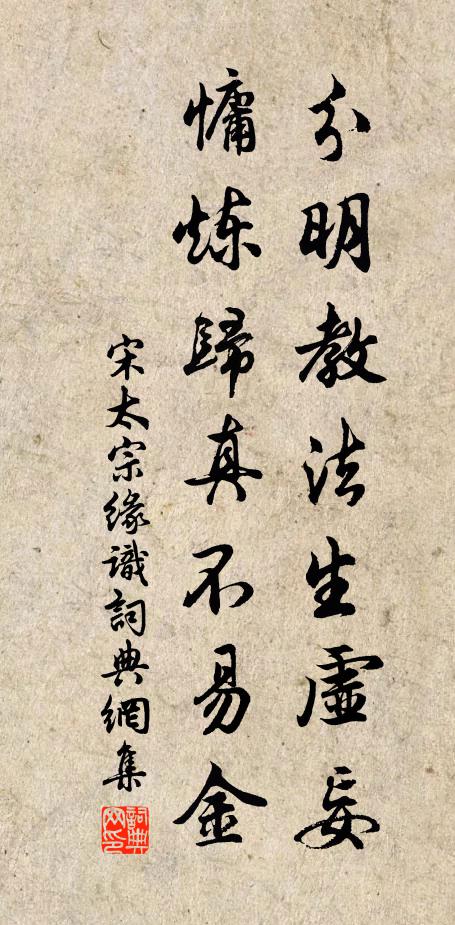 分明教法生虛妄
慵炼歸真不易金
宋太宗緣識詞典網集
詞典
网印